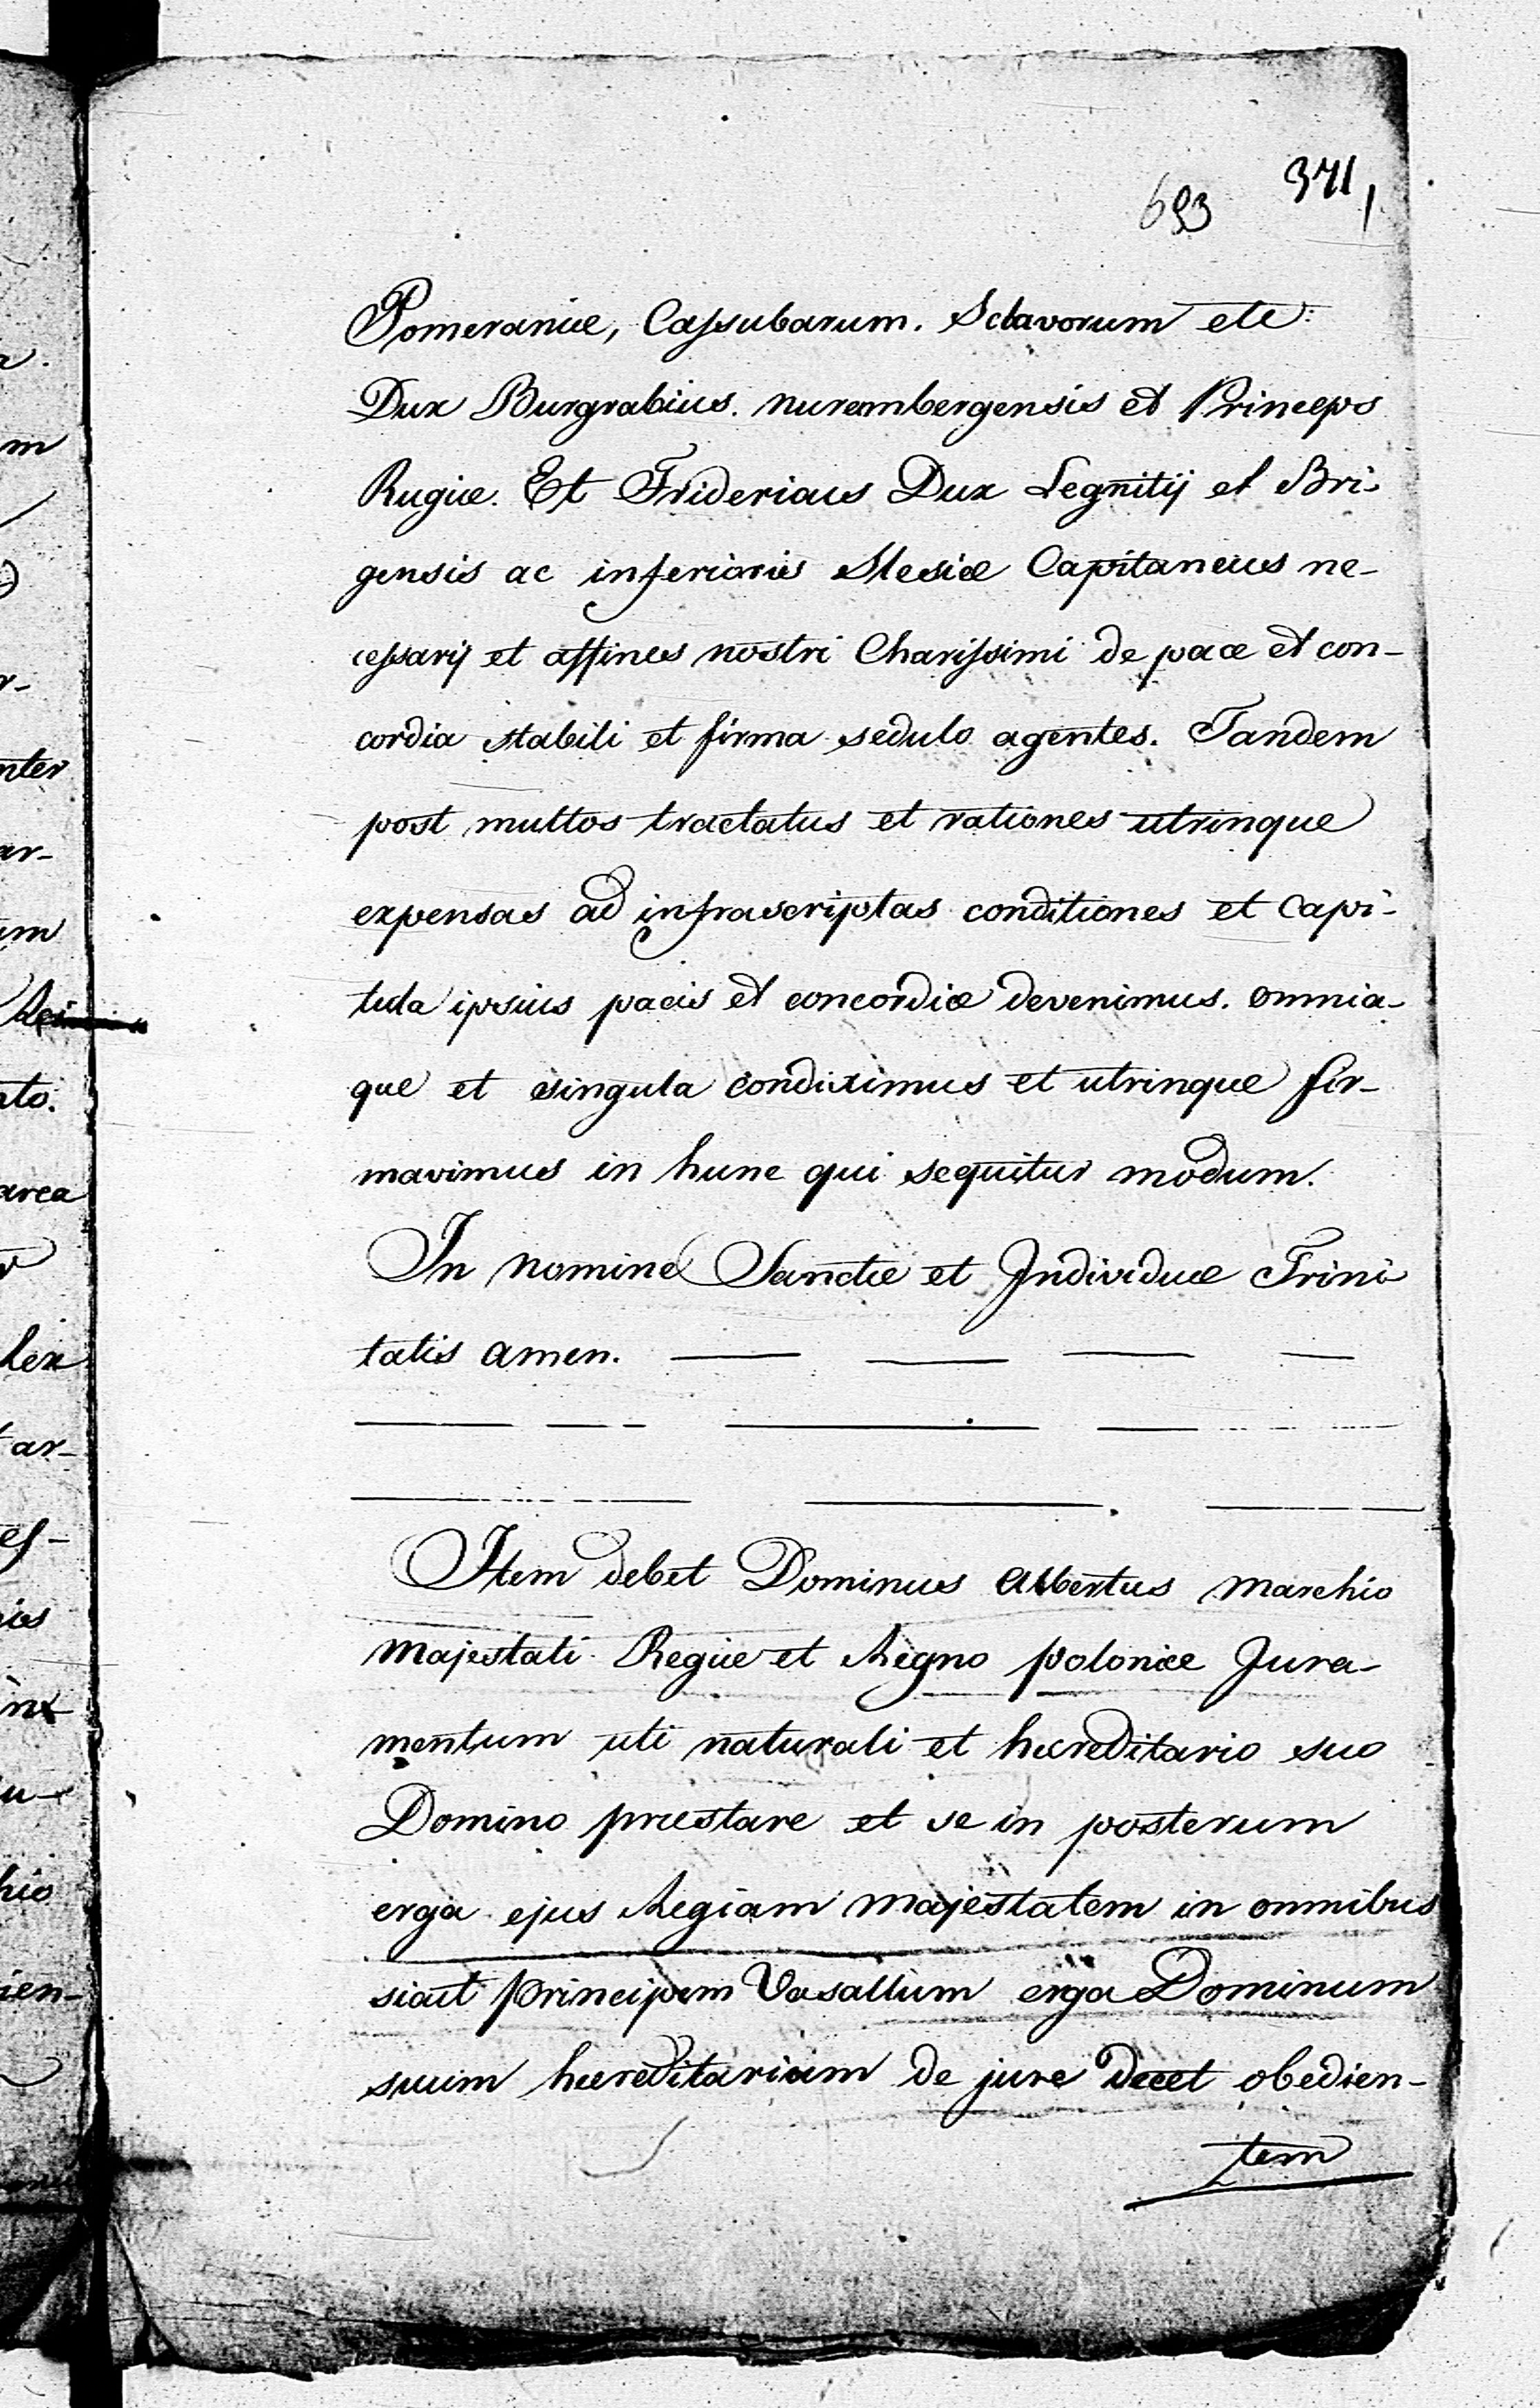 693 371
Pomeraniæ, Cassubarum. Sclavorum etc:
Dux Burgrabius. nurembergensis et Princeps
Rugiæ. Et Fridericus Dux Legnitij et Bri-
gensis ac inferioris Slesiæ Capitaneus ne-
cessarij et affines nostri Charissimi de pace et con-
cordia stabili et firma sedulo agentes. Tandem
post multos tractatus et rationes utrinque
expensas ad infrascriptas conditiones et capi-
tula ipsius pacis et concordiæ devenimus. omnia-
que et singula condiximus et utrinque fir-
mavimus in hunc qui sequitur modum.
In nomine Sanctæ et Individuæ Trini
tatis amen.
Item debet Dominus Albertus Marchio
Majestati Regiæ et Regno poloniæ Jura-
mentum uti naturali et hæreditario suo
Domino præstare et se in posterum
erga ejus Regiam Majestatem in omnibus
sicut principem Vasallum erga Dominum
suum hæreditarium de jure decet obedien-
tem